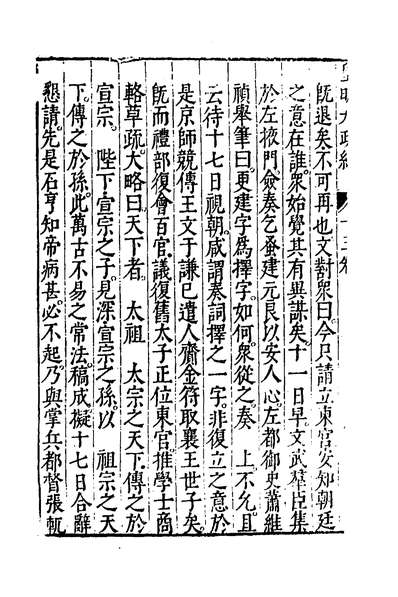 皇明大政紀　十三卷
旣退矣不可再也文對衆曰今只請立東宫安知朝廷
之意在誰衆始覺其有異謀矣十一日早文武羣臣集
於左掖門僉奏乞蚤建元良以安人心左都御史蕭維
禎舉筆曰更建字爲擇字如何衆從之奏　上不允且
云待十七日視朝咸謂奏詞擇之一字非復立之意於
是京師競傳王文于謙已遣人齎金符取襄王世子矣
旣而禮部復會百官議復舊太子正位東宫推學士商
輅草疏大略曰天下者　太祖　太宗之天下傳之於
宣宗　陛下宣宗之子見深宣宗之孫以　祖宗之天
下傳之於孫此萬古不易之常法稿成擬十七日合辭
懇請先是石亨知帝病甚必不起乃與掌兵都督張軏